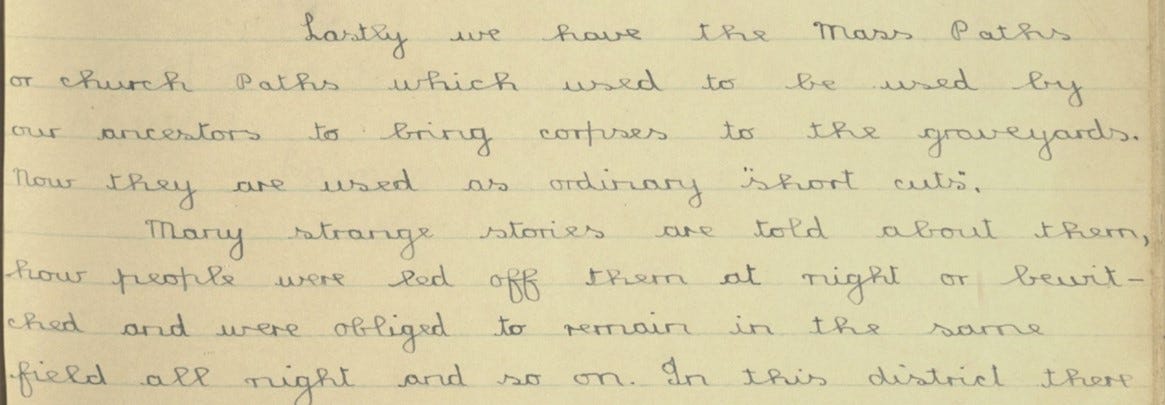 Lastly we have the Mass Paths
or church Paths which used to be used by
our ancestors to bring corpses to the graveyards.
Now they are used as ordinary "short cuts".
Many strange stories are told about them,
how people were led off them at night or bewit-
ched and were obliged to remain in the same
field all night and so on. In this district there